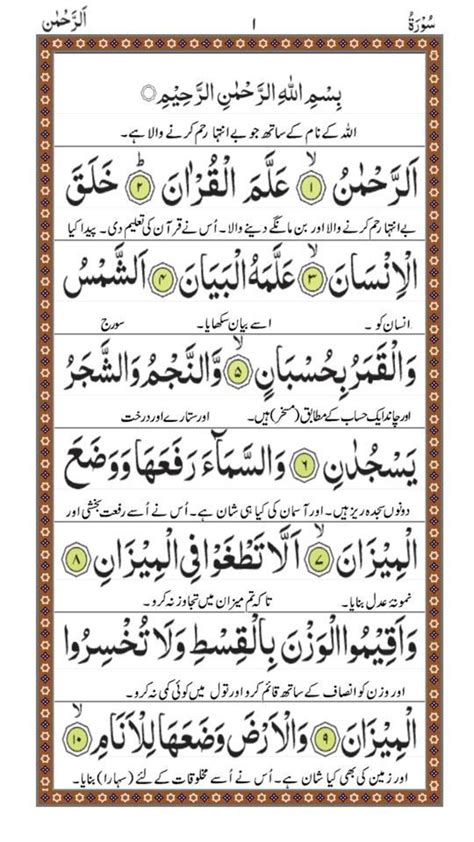 سُوْرَةُ ١ اَلرَّحْمٰن
بِسْمِ اللّٰهِ الرَّحْمٰنِ الرَّحِيْمِ ۝
اللہ کے نام کے ساتھ جو بے انتہا رحم کرنے والا ہے۔
اَلرَّحْمٰنُ ۙ﴿۱﴾ عَلَّمَ الْقُرْاٰنَ ؕ﴿۲﴾ خَلَقَ
بے انتہا رحم کرنے والا اور بن مانگے دینے والا۔ اُس نے قرآن کی تعلیم دی۔ پیدا کیا
الْاِنْسَانَ ۙ﴿۳﴾ عَلَّمَهُ الْبَيَانَ ﴿۴﴾ اَلشَّمْسُ
انسان کو۔ اسے بیان سکھایا۔ سورج
وَالْقَمَرُ بِحُسْبَانٍ ۙ﴿۵﴾ وَّالنَّجْمُ وَالشَّجَرُ
اور چاند ایک حساب کے مطابق (مسخر) ہیں۔ اور ستارے اور درخت
يَسْجُدٰنِ ﴿۶﴾ وَالسَّمَآءَ رَفَعَهَا وَوَضَعَ
دونوں سجدہ ریز ہیں۔ اور آسمان کی کیا ہی شان ہے۔ اُس نے اُسے رفعت بخشی اور
الْمِيْزَانَ ۙ﴿۷﴾ اَلَّا تَطْغَوْا فِى الْمِيْزَانِ ﴿۸﴾
نمونۂ عدل بنایا۔ تا کہ تم میزان میں تجاوز نہ کرو۔
وَاَقِيْمُوا الْوَزْنَ بِالْقِسْطِ وَلَا تُخْسِرُوا
اور وزن کو انصاف کے ساتھ قائم کرو اور تول میں کوئی کمی نہ کرو۔
الْمِيْزَانَ ﴿۹﴾ وَالْاَرْضَ وَضَعَهَا لِلْاَنَامِ ۙ﴿۱۰﴾
اور زمین کی بھی کیا شان ہے۔ اُس نے اُسے مخلوقات کے لئے (سہارا) بنایا۔